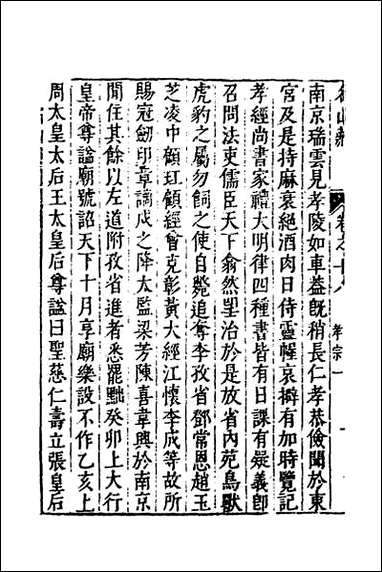 名山藏 卷之十八 孝宗一 一
南京瑞雲見孝陵如車蓋旣稍長仁孝恭儉聞於東
宮及是持麻衰絕酒肉日侍靈幄哀擗有加時覽記
孝經尚書家禮大明律四種書皆有日課有疑義卽
召問法吏儒臣天下翕然望治於是放省內苑鳥獸
虎豹之屬勿飼之使自斃追奪李孜省鄧常恩趙玉
芝凌中顧玒顧經曾克彰黃大經江懷李成等故所
賜冠劒印章謫戍之降太監梁芳陳喜韋興於南京
閒住其餘以左道附孜省進者悉罷黜癸卯上大行
皇帝尊謚廟號詔天下十月享廟樂設不作乙亥上
周太皇太后王太皇后尊謚曰聖慈仁壽立張皇后